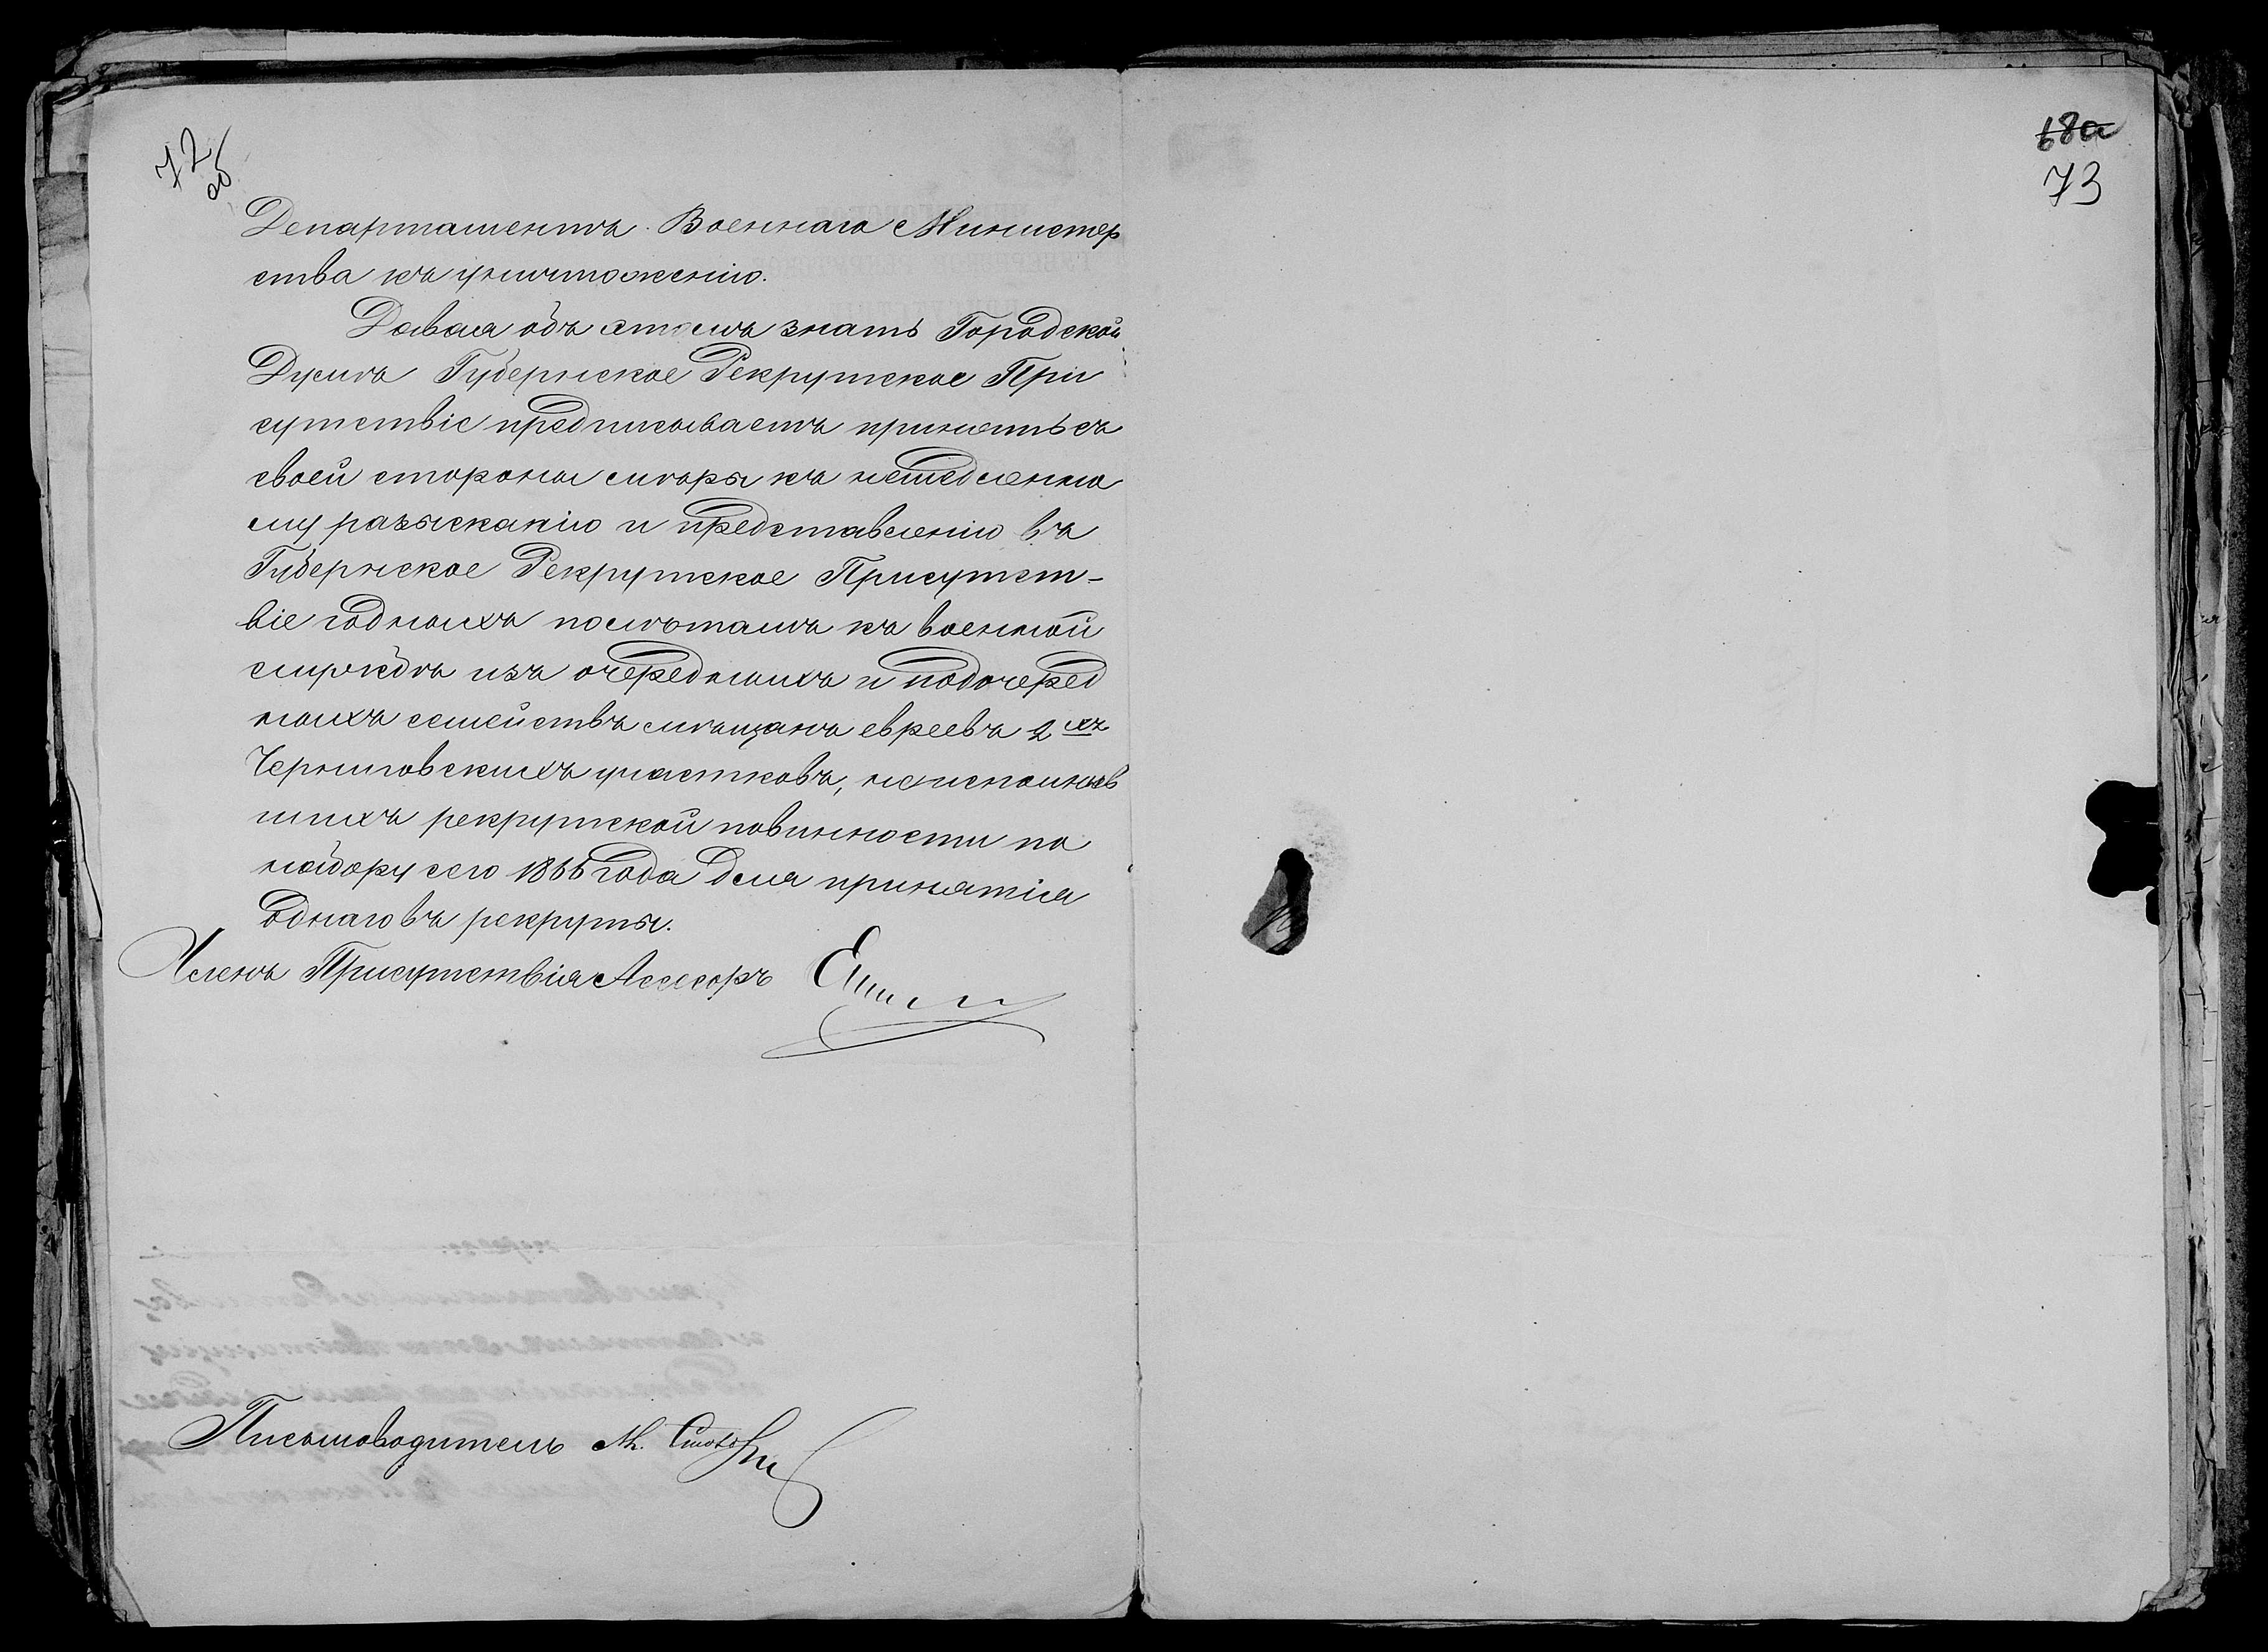 72
об
Департаментъ Военнаго Министер
ства къ уничтоженію.
Давая объ этомъ знать Городской
Думѣ Губернское Рекрутское При
сутствіе предписываетъ принять съ
своей стороны мѣры къ немедленно
му разысканію и представленію въ
Губернское Рекрутское Присутст-
віе годныхъ по лѣтамъ къ военной
службѣ изъ очередныхъ и подочеред
ныхъ семействъ мѣщанъ евреевъ 2хъ
Черниговскихъ участковъ, неисполнив
шихъ рекрутской повинности по
набору сего 1866 года для принятія
однаго въ рекруты.
Членъ Присутствія Ассесоръ
Письмоводитель М.
68а
73